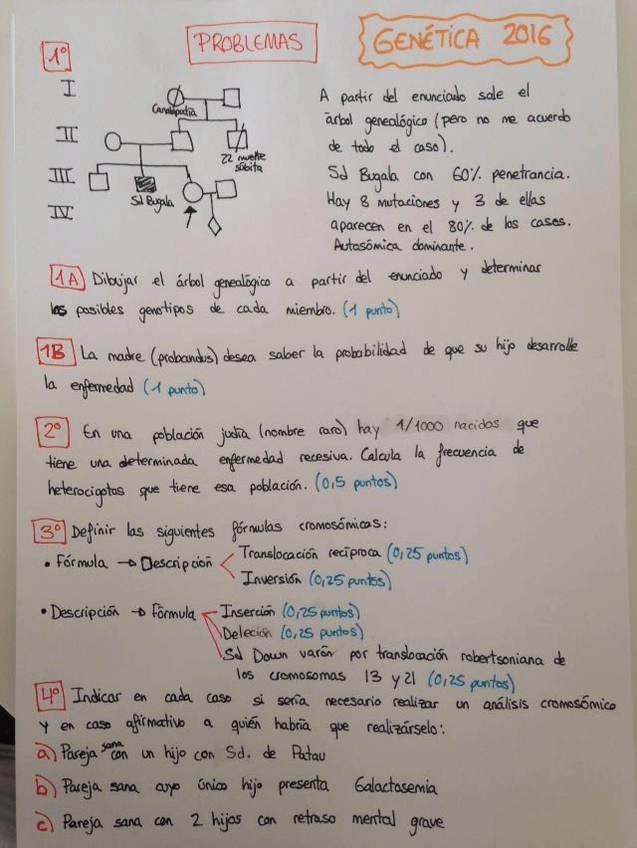 PROBLEMAS
GENÉTICA 2016
1º
I
II
III
IV
Canalopatía
22 muerte
súbita
Sd Bugala
A partir del enunciado sale el
árbol genealógico (pero no me acuerdo
de todo el caso).
Sd Bugala con 60% penetrancia.
Hay 8 mutaciones y 3 de ellas
aparecen en el 80% de los casos.
Autosómica dominante.
1A) Dibujar el árbol genealógico a partir del enunciado y determinar
los posibles genotipos de cada miembro. (1 punto)
1B La madre (probandus) desea saber la probabilidad de que su hijo desarrolle
la enfermedad (1 punto)
2º En una población judía (nombre raro) hay 1/1000 nacidos que
tiene una determinada enfermedad recesiva. Calcula la frecuencia de
heterocigotos que tiene esa población. (0,5 puntos)
3º Definir las siguientes fórmulas cromosómicas:
• Fórmula → Descripción
Translocación recíproca (0,25 puntos)
Inversión (0,25 puntos)
• Descripción → Fórmula
Inserción (0,25 puntos)
Deleción (0,25 puntos)
Sd Down varón por translocación robertsoniana de
los cromosomas 13 y 21 (0,25 puntos)
4º Indicar en cada caso si sería necesario realizar un análisis cromosómico
y en caso afirmativo a quién habría que realizárselo:
a) Pareja sana con un hijo con Sd. de Patau
b) Pareja sana cuyo único hijo presenta Galactosemia
c) Pareja sana con 2 hijos con retraso mental grave